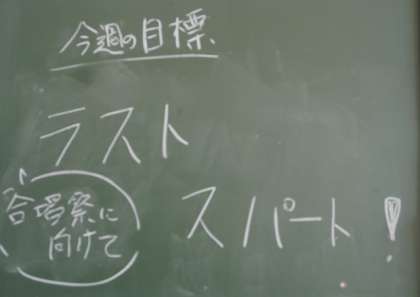 今週の目標
ラスト
スパート!
合唱祭に
向けて